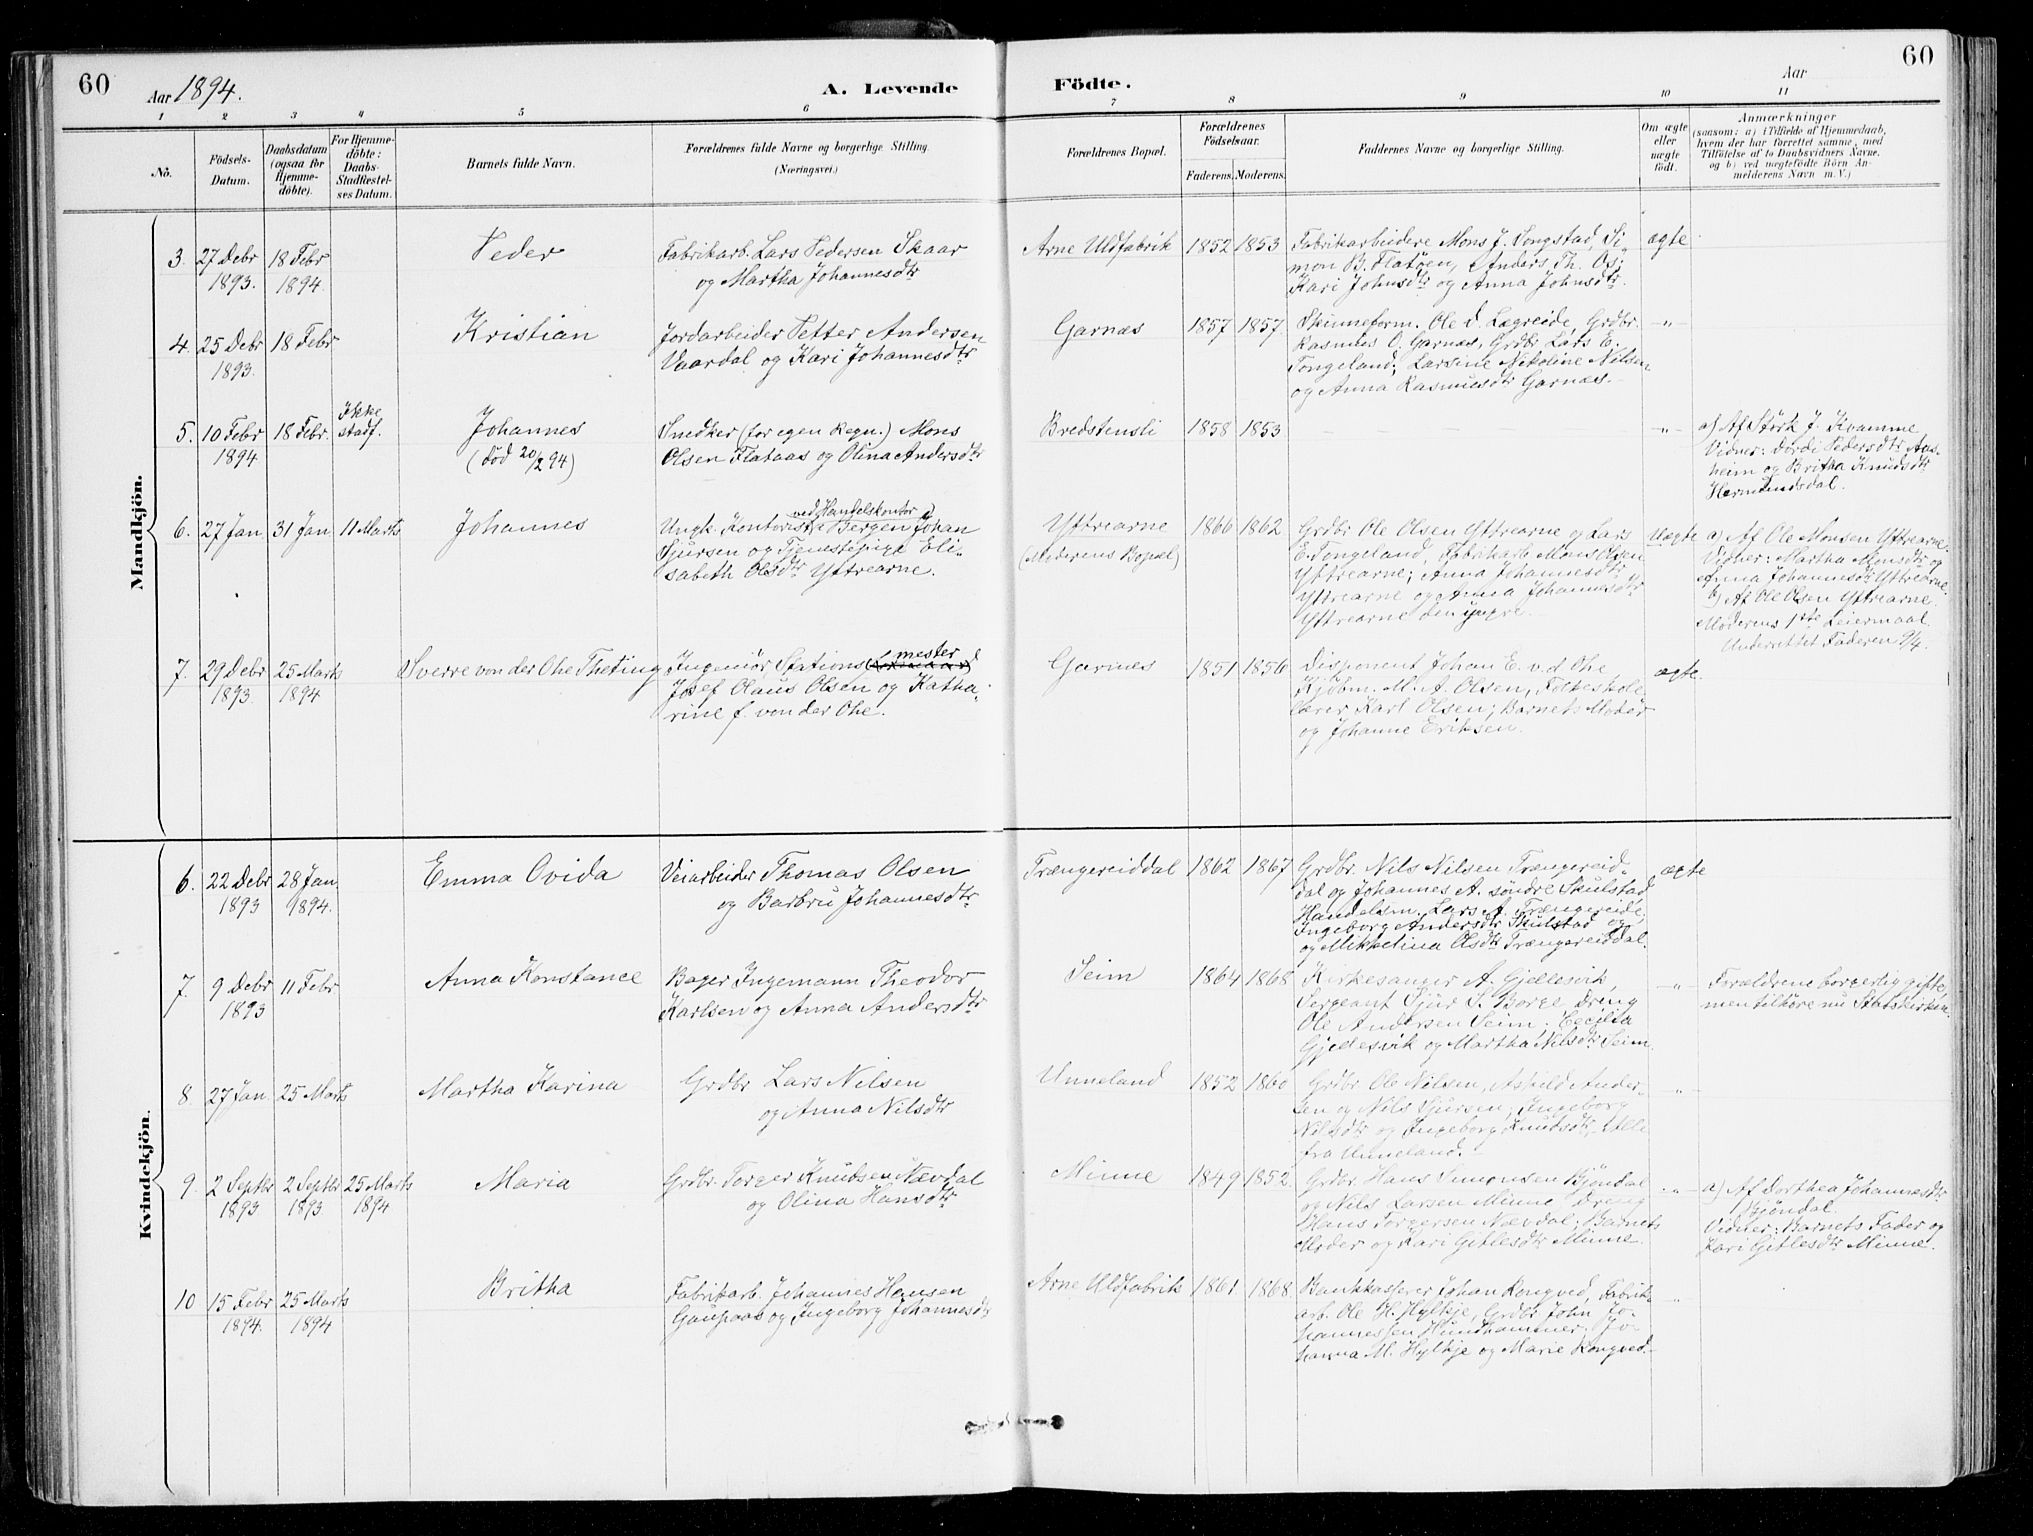 60
Aar 1894.
A. Levende
Födte.
Aar
60
1 2 3 4 5 6 7 8 9 10 11
No.
Födsels-
Datum.
Daabsdatum
(ogsaa for
Hjemme-
döbte).
For Hjemme-
döbte:
Daabs-
Stadfæstel-
ses Datum.
Barnets fulde Navn.
Forældrenes fulde Navne og borgerlige Stilling.
(Næringsvei.)
Forældrenes Bopæl.
Forældrenes
Födselsaar.
Faderens. Moderens.
Faddernes Navne og borgerlige Stilling.
Om ægte
eller
uægte
födt.
Anmærkninger
(saasom: a) i Tilfælde af Hjemmedaab,
hvem der har forrettet samme, med
Tilföielse af to Daabsvidners Navne,
og b) ved uægtefödte Börn An-
melderens Navn m. V.)
Mandkjön.
3. 27 Debr 1893. 18 Febr 1894.
Peder
Fabrikarb. Lars Pedersen Skaar
og Martha Johannesdtr
Arne Uldfabrik 1852 1853
Fabrikarbeidere Mons J. Songstad, Si-
mon B. Flatøen, Anders Th. Os;
Kari Johnsdtr og Anna Johnsdtr.
ægte
4. 25 Debr 1893. 18 Febr
Kristian
Jordarbeider Petter Andersen
Vaardal og Kari Johannesdtr
Garnæs 1857 1857
Skinneform. Ole d. Lægreide, Grdbr.
Rasmus O. Garnæs, Grdbr Lars E.
Tongeland; Larsine Nikoline Nilsen
og Anna Rasmusdtr Garnæs.
-"-
5. 10 Febr 1894 18 Febr. Ikke
stadf.
Johannes
(död 20/2 94)
Snedker (for egen Regn.) Mons
Olsen Flataas og Olina Andersdtr
Bredstensli 1858 1853
-"-
a) Af Störk J. Kvamme
Vidner: Dordi Pedersdtr Aas-
heim og Britha Knudsdtr
Hermundsdal.
6. 27 Jan 31 Jan 11 Marts
Johannes
ved Handelskontor i
Ungk. Kontorist Bergen Johan
Sjursen og Tjenestepige Eli-
sabeth Olsdtr Yttrearne.
Yttrearne
(Moderens Bopæl)
1866 1862
Grdbr Ole Olsen Yttrearne og Lars
E. Tongeland, Fabrikarb. Mons Olsen
Yttrearne; Anna Johannesdtr
Yttrearne og Anna Johannesdtr
Yttrearne den yngre.
Uægte
a) Af Ole Monsen Yttrearne.
Vidner: Martha Monsdtr og
Anna Johannesdtr Yttrearne.
b) Af Ole Olsen Yttrearne.
Moderens 1ste Leiermaal.
Underrettet Faderen 9/4.
7. 29 Debr 1893 25 Marts 1894
Sverre von der Ohe Theting
Ingeniör, Stationsmester
Josef Olaus Olsen og Katha-
rine f. von der Ohe.
Garnæs 1851 1856
Disponent Johan E. v. d. Ohe
Kjöbm. M. A. Olsen, Folkeskole
lærer Karl Olsen; Barnets Moder
og Johanne Eriksen.
ægte
Kvindekjön.
6. 22 Debr 1893 28 Jan. 1894.
Emma Ovida
Veiarbeider Thomas Olsen
og Barbru Johannesdtr
Trængereiddal 1862 1867
Grdbr. Nils Nilsen Trængereid-
dal og Johannes A. söndre Skulstad
Handelsm. Lars A. Trængereide;
Ingeborg Andersdtr Skulstad og
og Mikkelina Olsdtr Trængereiddal.
ægte
7. 9 Debr 1893 11 Febr
Anna Konstance
Bager Ingemann Theodor
Karlsen og Anna Andersdtr
Seim 1864 1868
Kirkesanger A. Gjelesvik,
Sergeant Sjur S. Borge, Dreng
Ole Andersen Seim; Cecilia
Gjelesvik og Martha Nilsdtr Seim
-"-
Forældrene borgerlig gifte,
men tilhöre nu Statskirken.
8. 27 Jan. 25 Marts
Martha Karina
Grdbr Lars Nilsen
og Anna Nilsdtr
Unneland 1852 1860
Grdbr. Ole Nilsen, Askild Ander-
sen og Nils Sjursen; Ingeborg
Nilsdtr og Ingeborg Knudsdtr, Alle
fra Unneland.
-"-
9. 2 Septbr 1893 2 Septbr 1893 25 Marts 1894
Maria
Grdbr. Torger Knudsen Nævdal
og Olina Hansdtr
Minne 1849 1852.
Grdbr. Hans Simonsen Bjöndal
og Nils Larsen Minne, Dreng
Hans Torgersen Nævdal; Barnets
Moder og Kari Gitlesdtr Minne.
-"-
a) Af Dorthea Johannesdtr
Bjöndal.
Vidner: Barnets Fader og
Kari Gitlesdtr Minne.
10 15 Febr 1894. 25 Marts 1894
Britha
Fabrikarb. Johannes Hansen
Gaupaas og Ingeborg Johannesdtr
Arne Uldfabrik 1861 1868
Bankkasserer Johan Rongved, Fabrik-
arb. Ole H. Hylkje, Grdbr John Jo-
hannessen Hundhammer. Jo-
hanna M. Hylkje og Marie Rongved.
-"-